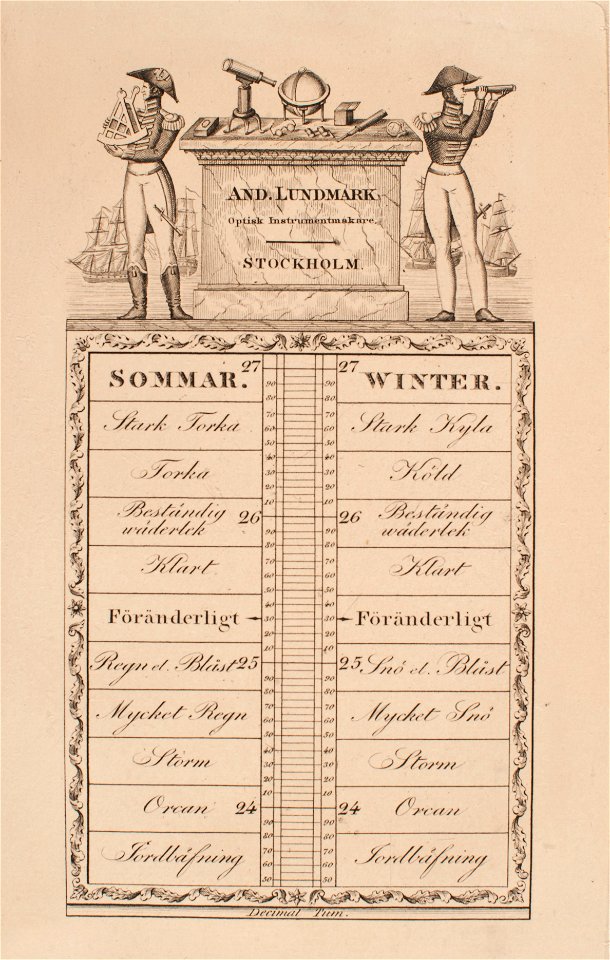 AND. LUNDMARK.
Optisk Instrumentmakare.
STOCKHOLM.
27 27
SOMMAR. WINTER.
90 90
80 80
Stark Torka 70 70 Stark Kyla
60 60
50 50
40 40
Torka 30 30 Köld
20 20
10 10
Beständig 26 26 Beständig
wäderlek 90 90 wäderlek
80 80
Klart. 70 70 Klart.
60 60
50 50
40 40
Föränderligt 30 30 Föränderligt
20 20
10 10
Regn el. Blåst 25 25 Snö el. Blåst
90 90
80 80
Mycket Regn 70 70 Mycket Snö
60 60
50 50
40 40
Storm 30 30 Storm
20 20
10 10
Orcan 24 24 Orcan
90 90
80 80
Jordbäfning 70 70 Jordbäfning
60 60
50 50
Decimal Tum.